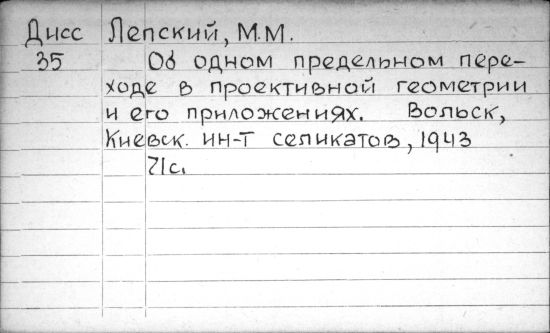 Дисс Лепский, М.М.
35 Об одном предельном пере-
ходе в проективной геометрии
и его приложениях. Вольск,
Киевск. ин-т селикатов, 1943
71с.